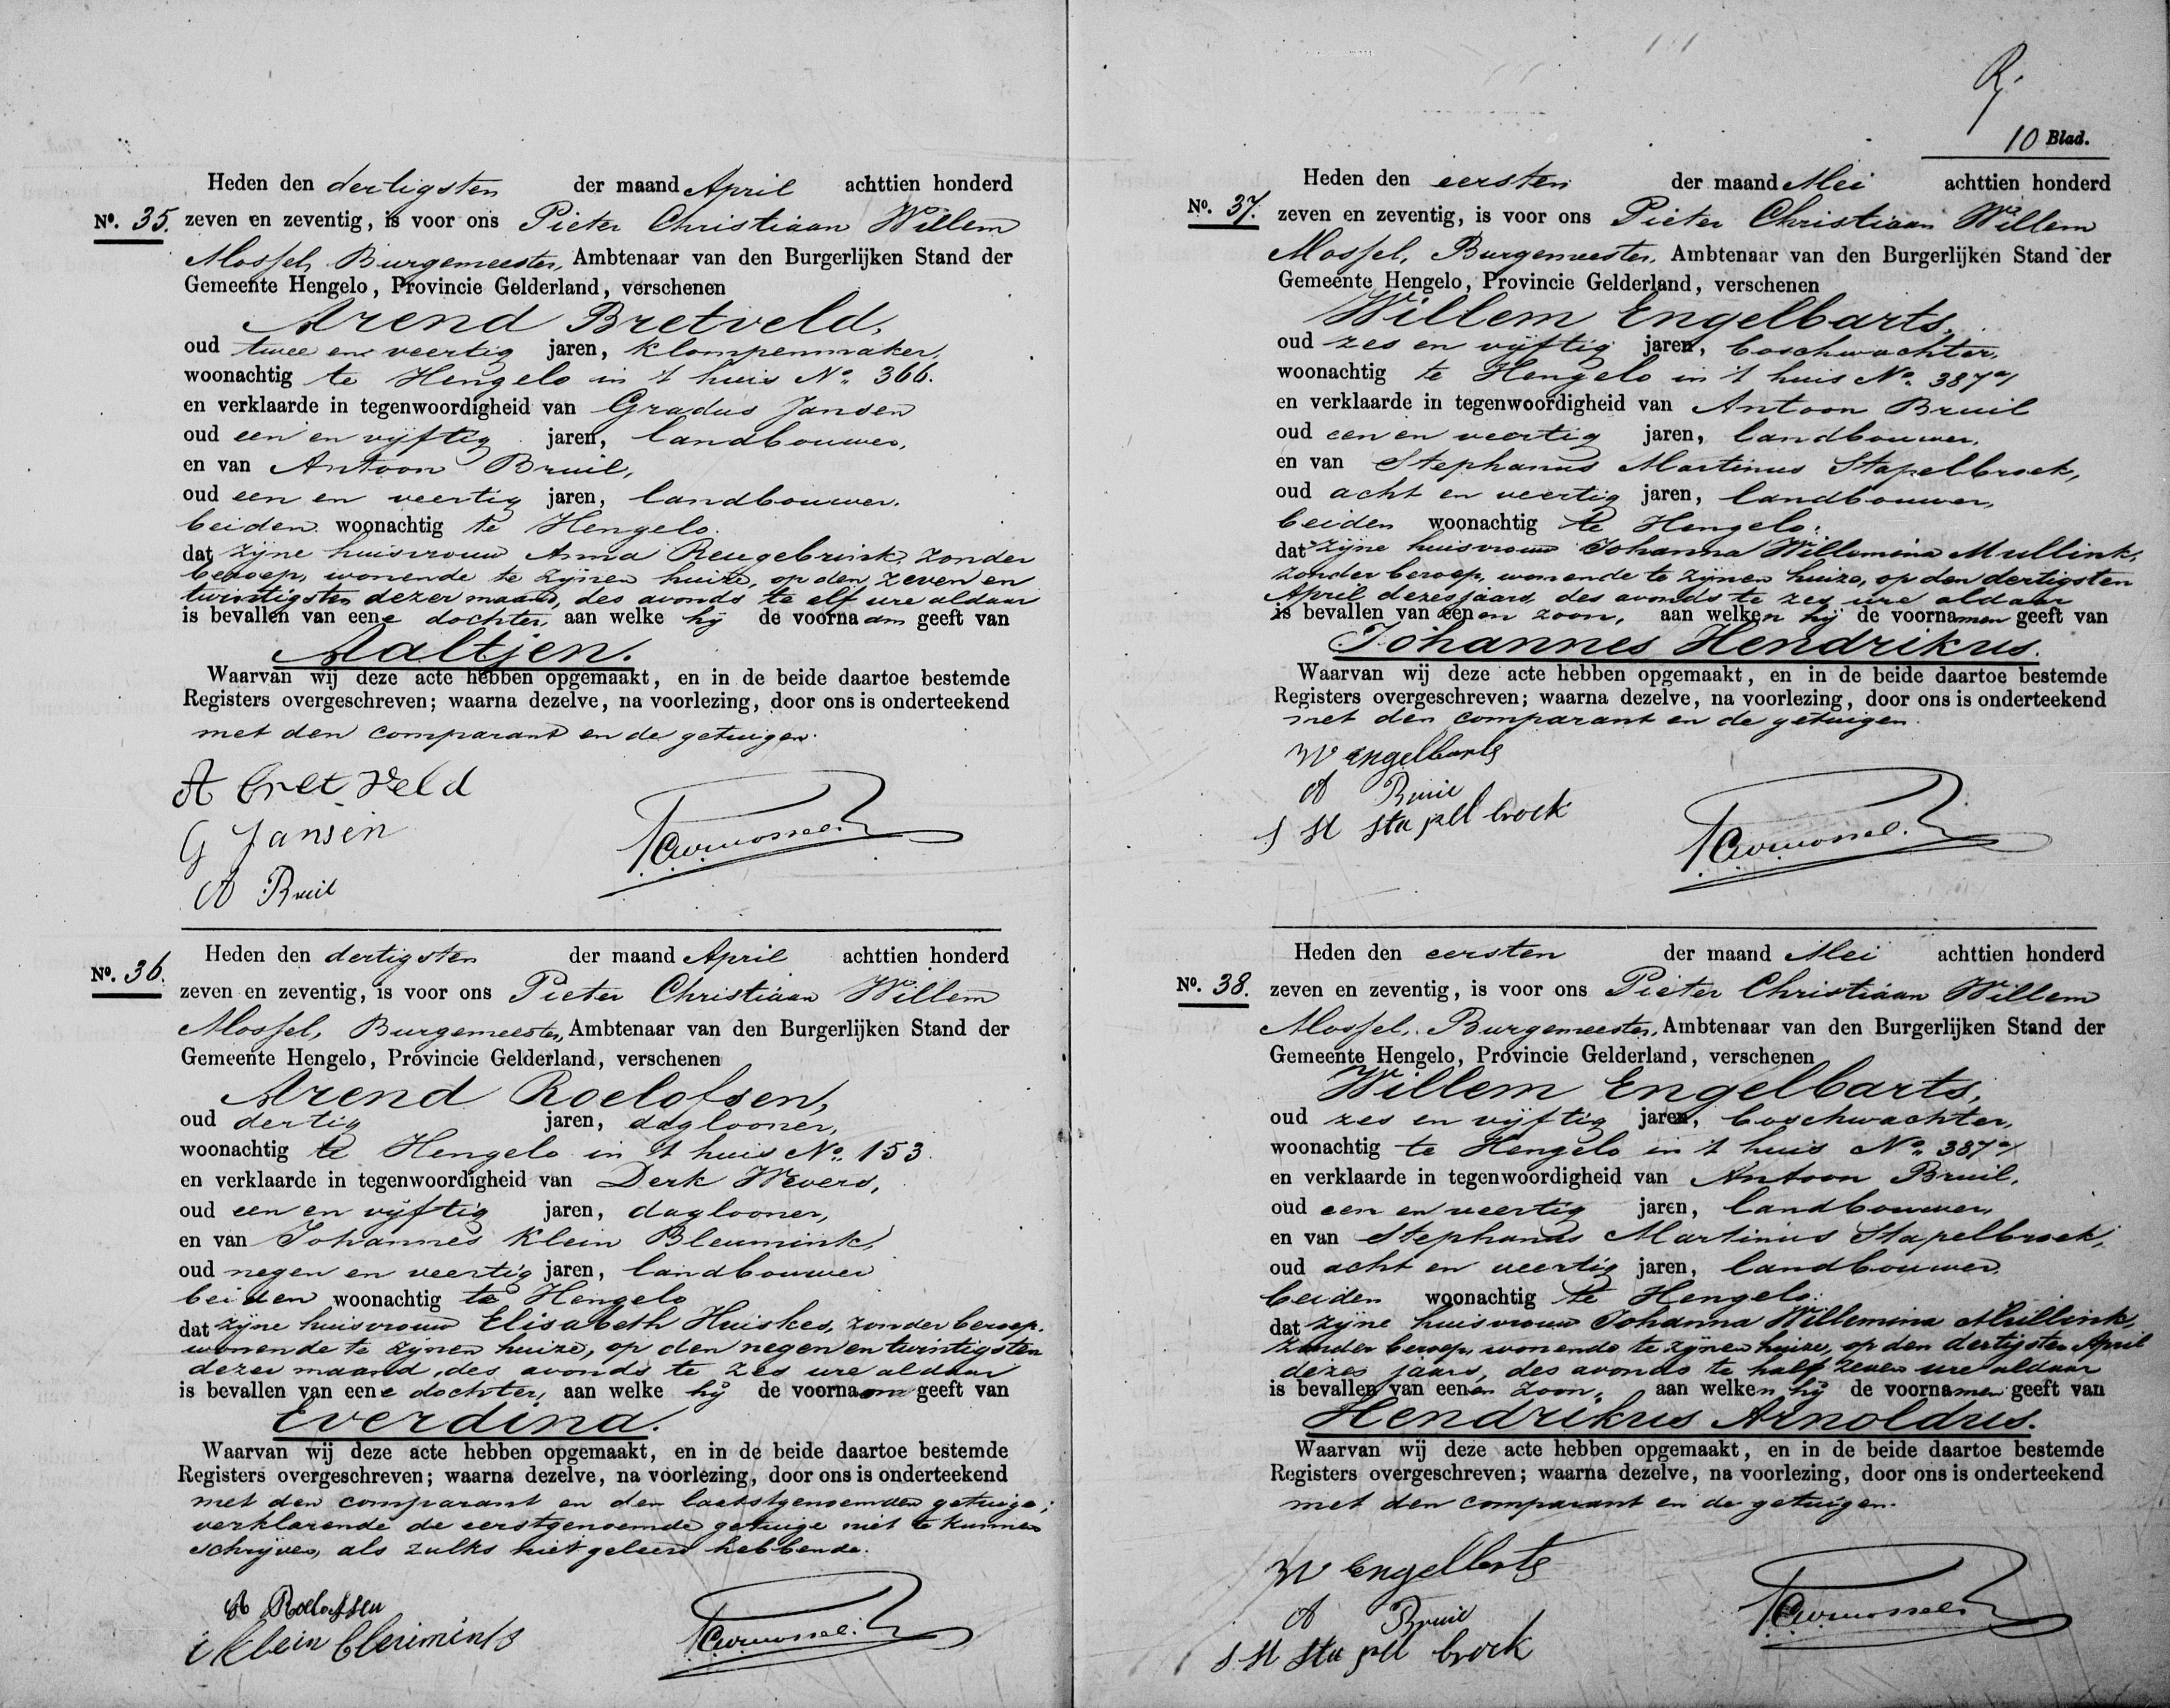 Heden den dertigsten der maand April achttien honderd
No. 35. zeven en zeventig, is voor ons Pieter Christiaan Willem
Mossel, Burgemeester, Ambtenaar van den Burgerlijken Stand der
Gemeente Hengelo, Provincie Gelderland, verschenen
Arend Bretveld,
oud twee en veertig jaren, klompenmaker,
woonachtig te Hengelo in 't huis No. 366.
en verklaarde in tegenwoordigheid van Gradus Jansen
oud een en vijftig jaren, landbouwer,
en van Antoon Bruil,
oud een en veertig jaren, landbouwer,
beiden woonachtig te Hengelo.
dat zijne huisvrouw Anna Reugebrink, zonder
beroep, wonende te zijnen huize, op den zeven en
twintigsten dezer maand, des avonds te elf ure aldaar
is bevallen van eene dochter, aan welke hij de voornaam geeft van
Aaltjen.
Waarvan wij deze acte hebben opgemaakt, en in de beide daartoe bestemde
Registers overgeschreven; waarna dezelve, na voorlezing, door ons is onderteekend
met den comparant en de getuigen.
A Bret Veld
G Jansen
A Bruil
PCWMossel.
Heden den dertigsten der maand April achttien honderd
No. 36. zeven en zeventig, is voor ons Pieter Christiaan Willem
Mossel, Burgemeester, Ambtenaar van den Burgerlijken Stand der
Gemeente Hengelo, Provincie Gelderland, verschenen
Arend Roelofsen,
oud dertig jaren, daglooner,
woonachtig te Hengelo in 't huis No. 153.
en verklaarde in tegenwoordigheid van Derk Wevers,
oud een en vijftig jaren, daglooner,
en van Johannes Klein Bleumink,
oud negen en veertig jaren, landbouwer
beiden woonachtig te Hengelo
dat zijne huisvrouw Elisabeth Huiskes, zonder beroep.
wonende te zijnen huize, op den negen en twintigsten
dezer maand, des avonds te zes ure aldaar
is bevallen van eene dochter, aan welke hij de voornaam geeft van
Everdina.
Waarvan wij deze acte hebben opgemaakt, en in de beide daartoe bestemde
Registers overgeschreven; waarna dezelve, na voorlezing, door ons is onderteekend
met den comparant en den laatstgenoemden getuige;
verklarende de eerstgenoemde getuige niet te kunnen
schrijven, als zulks niet geleerd hebbende.
A Roelofsen
i Klein Bleumink
PCWMossel.
10 Blad.
Heden den eersten der maand Mei achttien honderd
No. 37. zeven en zeventig, is voor ons Pieter Christiaan Willem
Mossel, Burgemeester, Ambtenaar van den Burgerlijken Stand der
Gemeente Hengelo, Provincie Gelderland, verschenen
Willem Engelbarts,
oud zes en vijftig jaren, boschwachter,
woonachtig te Hengelo in 't huis No. 387a/
en verklaarde in tegenwoordigheid van Antoon Bruil
oud een en veertig jaren, landbouwer,
en van Stephanus Martinus Stapelbroek,
oud acht en veertig jaren, landbouwer,
beiden woonachtig te Hengelo:
dat zijne huisvrouw Johanna Willemina Mullink,
zonder beroep, wonende te zijnen huize, op den dertigsten
April dezes jaars, des avonds te zes ure aldaar
is bevallen van eenen zoon, aan welken hij de voornamen geeft van
Johannes Hendrikus.
Waarvan wij deze acte hebben opgemaakt, en in de beide daartoe bestemde
Registers overgeschreven; waarna dezelve, na voorlezing, door ons is onderteekend
met den comparant en de getuigen.
W Engelbarts
A Bruil
S M Stapelbroek
PCWMossel.
Heden den eersten der maand Mei achttien honderd
No. 38. zeven en zeventig, is voor ons Pieter Christiaan Willem
Mossel, Burgemeester, Ambtenaar van den Burgerlijken Stand der
Gemeente Hengelo, Provincie Gelderland, verschenen
Willem Engelbarts,
oud zes en vijftig jaren, boschwachter,
woonachtig te Hengelo in 't huis No. 387a/
en verklaarde in tegenwoordigheid van Antoon Bruil,
oud een en veertig jaren, landbouwer,
en van Stephanus Martinus Stapelbroek,
oud acht en veertig jaren, landbouwer,
beiden woonachtig te Hengelo:
dat zijne huisvrouw Johanna Willemina Mullink,
zonder beroep, wonende te zijnen huize, op den dertigsten April
dezes jaars, des avonds te half zeven ure aldaar
is bevallen van eenen zoon, aan welken hij de voornamen geeft van
Hendrikus Arnoldus.
Waarvan wij deze acte hebben opgemaakt, en in de beide daartoe bestemde
Registers overgeschreven; waarna dezelve, na voorlezing, door ons is onderteekend
met den comparant en de getuigen.
W Engelbarts
A Bruil
S M Stapelbroek
PCWMossel.